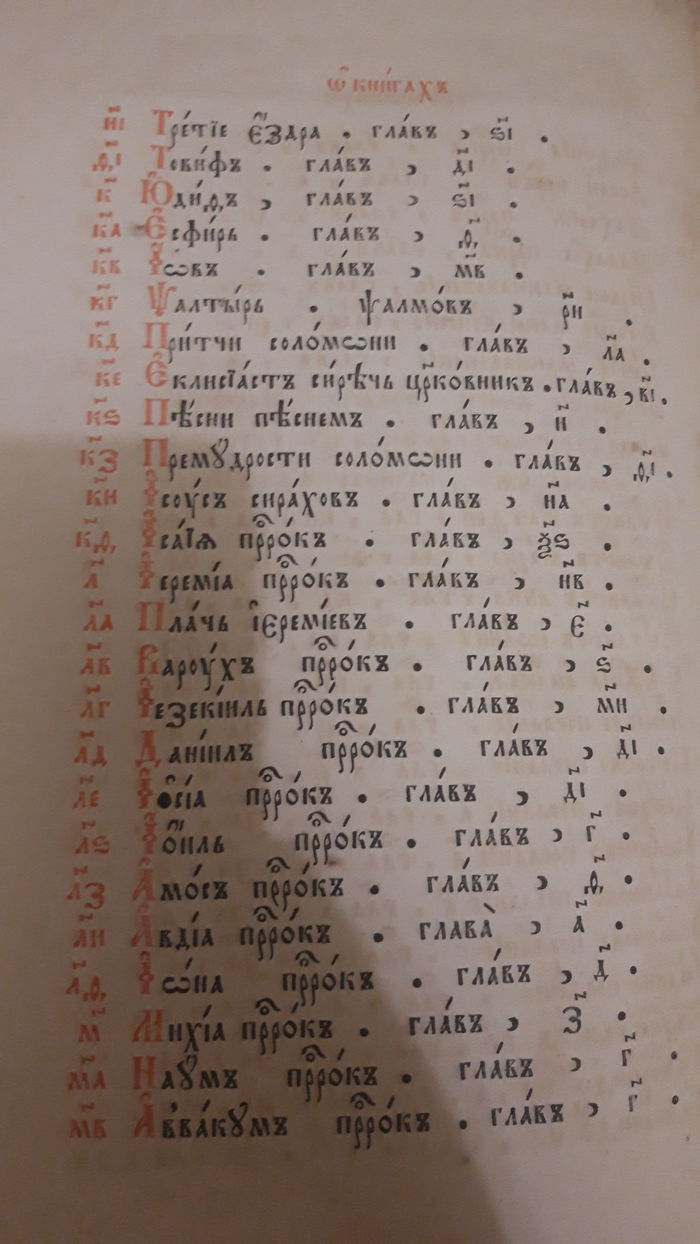 ѡ҆ кни́гахъ
н҃і Тре́тїе є҆́здра . гла́въ , ѕ҃і .
ѳ҃і Тови́фъ . гла́въ , д҃і .
к҃ Ю҆ди́ѳъ , гла́въ , ѕ҃і .
к҃а Е҆сфи́рь . гла́въ , ѳ҃ .
к҃в І҆́ѡвъ . гла́въ , м҃в .
к҃г Ѱалты́рь . ѱалмо́въ , р҃н .
к҃д При́тчи соло́мѡни . гла́въ , л҃а .
к҃е Е҆клисїа́стъ си́рѣчь цр҃ко́вникъ . гла́въ , в҃і .
к҃ѕ Пѣ́сни пѣ́снемъ . гла́въ , н҃ .
к҃з Премꙋ́дрости соло́мѡни . гла́въ , ѳ҃і .
к҃н І҆соу́съ сира́ховъ . гла́въ , н҃а .
к҃ѳ І҆са́їѧ прⷪ҇ро́къ . гла́въ , ѯ҃ѕ .
л҃ І҆еремі́а прⷪ҇ро́къ . гла́въ , н҃в .
л҃а Пла́чь і҆єремі́евъ . гла́въ , є҃ .
л҃в Вароу́хъ прⷪ҇ро́къ . гла́въ , ѕ҃ .
л҃г І҆езекі́иль прⷪ҇ро́къ . гла́въ , м҃н .
л҃д Данїи́лъ прⷪ҇ро́къ . гла́въ , д҃і .
л҃е І҆ѻсі́а прⷪ҇ро́къ . гла́въ , д҃і .
л҃ѕ І҆ѻ́иль прⷪ҇ро́къ . гла́въ , г҃ .
л҃з А҆мо́съ прⷪ҇ро́къ . гла́въ , ѳ҃ .
л҃н А҆вді́а прⷪ҇ро́къ . глава̀ , а҃ .
л҃ѳ І҆ѡ́на прⷪ҇ро́къ . гла́въ , д҃ .
м҃ Михі́а прⷪ҇ро́къ . гла́въ , з҃ .
м҃а Наꙋ́мъ прⷪ҇ро́къ . гла́въ , г҃ .
м҃в А҆вва́кꙋмъ прⷪ҇ро́къ . гла́въ , г҃ .